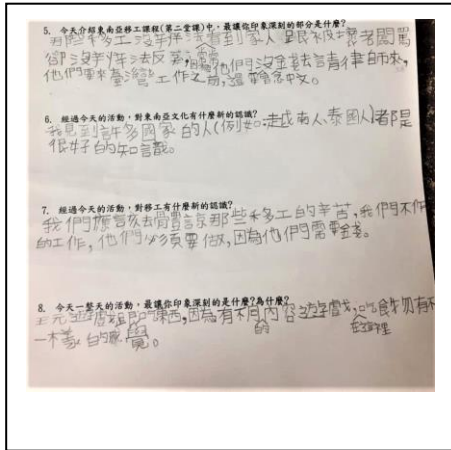 5. 今天介紹東南亞移工課程(第二堂課)中，最讓你印象深刻的部分是什麼？
有些移工沒辦法看到家人，跟被壞老闆罵
卻沒辦法反駁，因為他們沒金錢請律師來，
他們要來臺灣工作之前，還要會念中文。
6. 經過今天的活動，對東南亞文化有什麼新的認識？
我見到許多國家的人(例如:越南人、泰國人)都是
很好的知識。
7. 經過今天的活動，對移工有什麼新的認識？
我們應該去體諒那些移工的辛苦，我們不作
的工作，他們必須要做，因為他們需要錢。
8. 今天一整天的活動，最讓你印象深刻的是什麼?為什麼?
玩遊戲跟吃東西，因為有不同內容的遊戲，吃食物有不
在這裡
一樣的感覺。